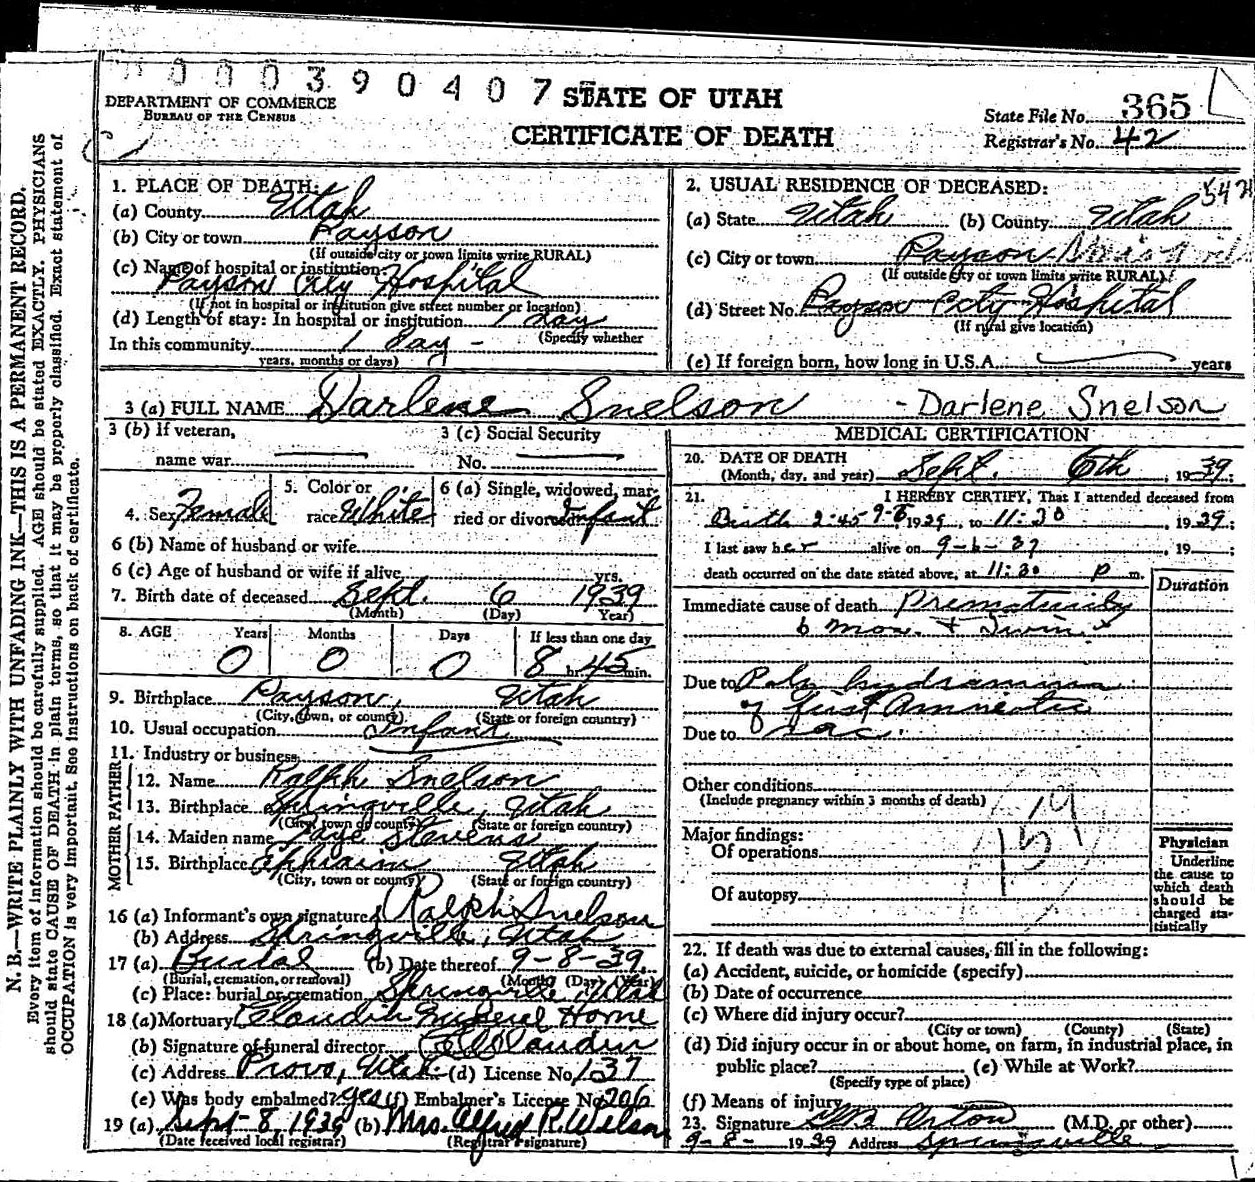 000390407
STATE OF UTAH
CERTIFICATE OF DEATH
DEPARTMENT OF COMMERCE
BUREAU OF THE CENSUS
State File No. 365
Registrar's No. 42
N. B.—WRITE PLAINLY WITH UNFADING INK—THIS IS A PERMANENT RECORD.
Every item of information should be carefully supplied. AGE should be stated EXACTLY. PHYSICIANS
should state CAUSE OF DEATH in plain terms, so that it may be properly classified. Exact statement of
OCCUPATION is very important. See instructions on back of certificate.
1. PLACE OF DEATH:
(a) County Utah
(b) City or town Payson
(If outside city or town limits write RURAL)
(c) Name of hospital or institution:
Payson City Hospital
(If not in hospital or institution give street number or location)
(d) Length of stay: In hospital or institution 1 day
(Specify whether
In this community 1 day -
years, months or days)
2. USUAL RESIDENCE OF DECEASED:
(a) State Utah (b) County Utah
(c) City or town Payson
(If outside city or town limits write RURAL)
(d) Street No. Payson City Hospital
(If rural give location)
(e) If foreign born, how long in U.S.A. years
3 (a) FULL NAME Darlene Snelson - Darlene Snelson
3 (b) If veteran,
name war
3 (c) Social Security
No.
4. Sex Female
5. Color or
race White
6 (a) Single, widowed, mar-
ried or divorced Infant
6 (b) Name of husband or wife
6 (c) Age of husband or wife if alive yrs.
7. Birth date of deceased Sept. 6 1939
(Month) (Day) Year)
8. AGE Years Months Days If less than one day
0 0 0 8 hr. 45 min.
9. Birthplace Payson, Utah
(City, town, or county) (State or foreign country)
10. Usual occupation Infant
11. Industry or business
FATHER
12. Name Ralph Snelson
13. Birthplace Springville, Utah
(City, town or county) (State or foreign country)
MOTHER
14. Maiden name Faye Stevens
15. Birthplace Ephraim Utah
(City, town or county) (State or foreign country)
16 (a) Informant's own signature Ralph Snelson
(b) Address Springville, Utah
17 (a) Burial (b) Date thereof 9-8-39
(Burial, cremation, or removal) (Month) (Day) (Year)
(c) Place: burial or cremation Springville Utah
18 (a) Mortuary Claudin Funeral Home
(b) Signature of funeral director Claudin
(c) Address Provo, Utah (d) License No. 137
(e) Was body embalmed? yes (f) Embalmer's License No. 206
19 (a) Sept-8, 1939 (b) Mrs. Alfred R. Wilson
(Date received local registrar) (Registrar's signature)
MEDICAL CERTIFICATION
20. DATE OF DEATH
(Month, day, and year) Sept. 6th, 1939;
21. I HEREBY CERTIFY, That I attended deceased from
Birth 2:45 9-6 1939, to 11:30, 1939;
I last saw her alive on 9-6-39, 19 ;
death occurred on the date stated above, at 11:30 p m.
Duration
Immediate cause of death Prematurity
6 mon. + Twin
Due to Poly hydramnia
of first Amneotic
Due to sac.
Other conditions
(Include pregnancy within 3 months of death)
159
Major findings:
Of operations
Of autopsy
Physician
Underline
the cause to
which death
should be
charged sta-
tistically
22. If death was due to external causes, fill in the following:
(a) Accident, suicide, or homicide (specify)
(b) Date of occurrence
(c) Where did injury occur?
(City or town) (County) (State)
(d) Did injury occur in or about home, on farm, in industrial place, in
public place? (e) While at Work?
(Specify type of place)
(f) Means of injury
23. Signature Orton (M.D. or other)
9-8- 1939 Address Springville